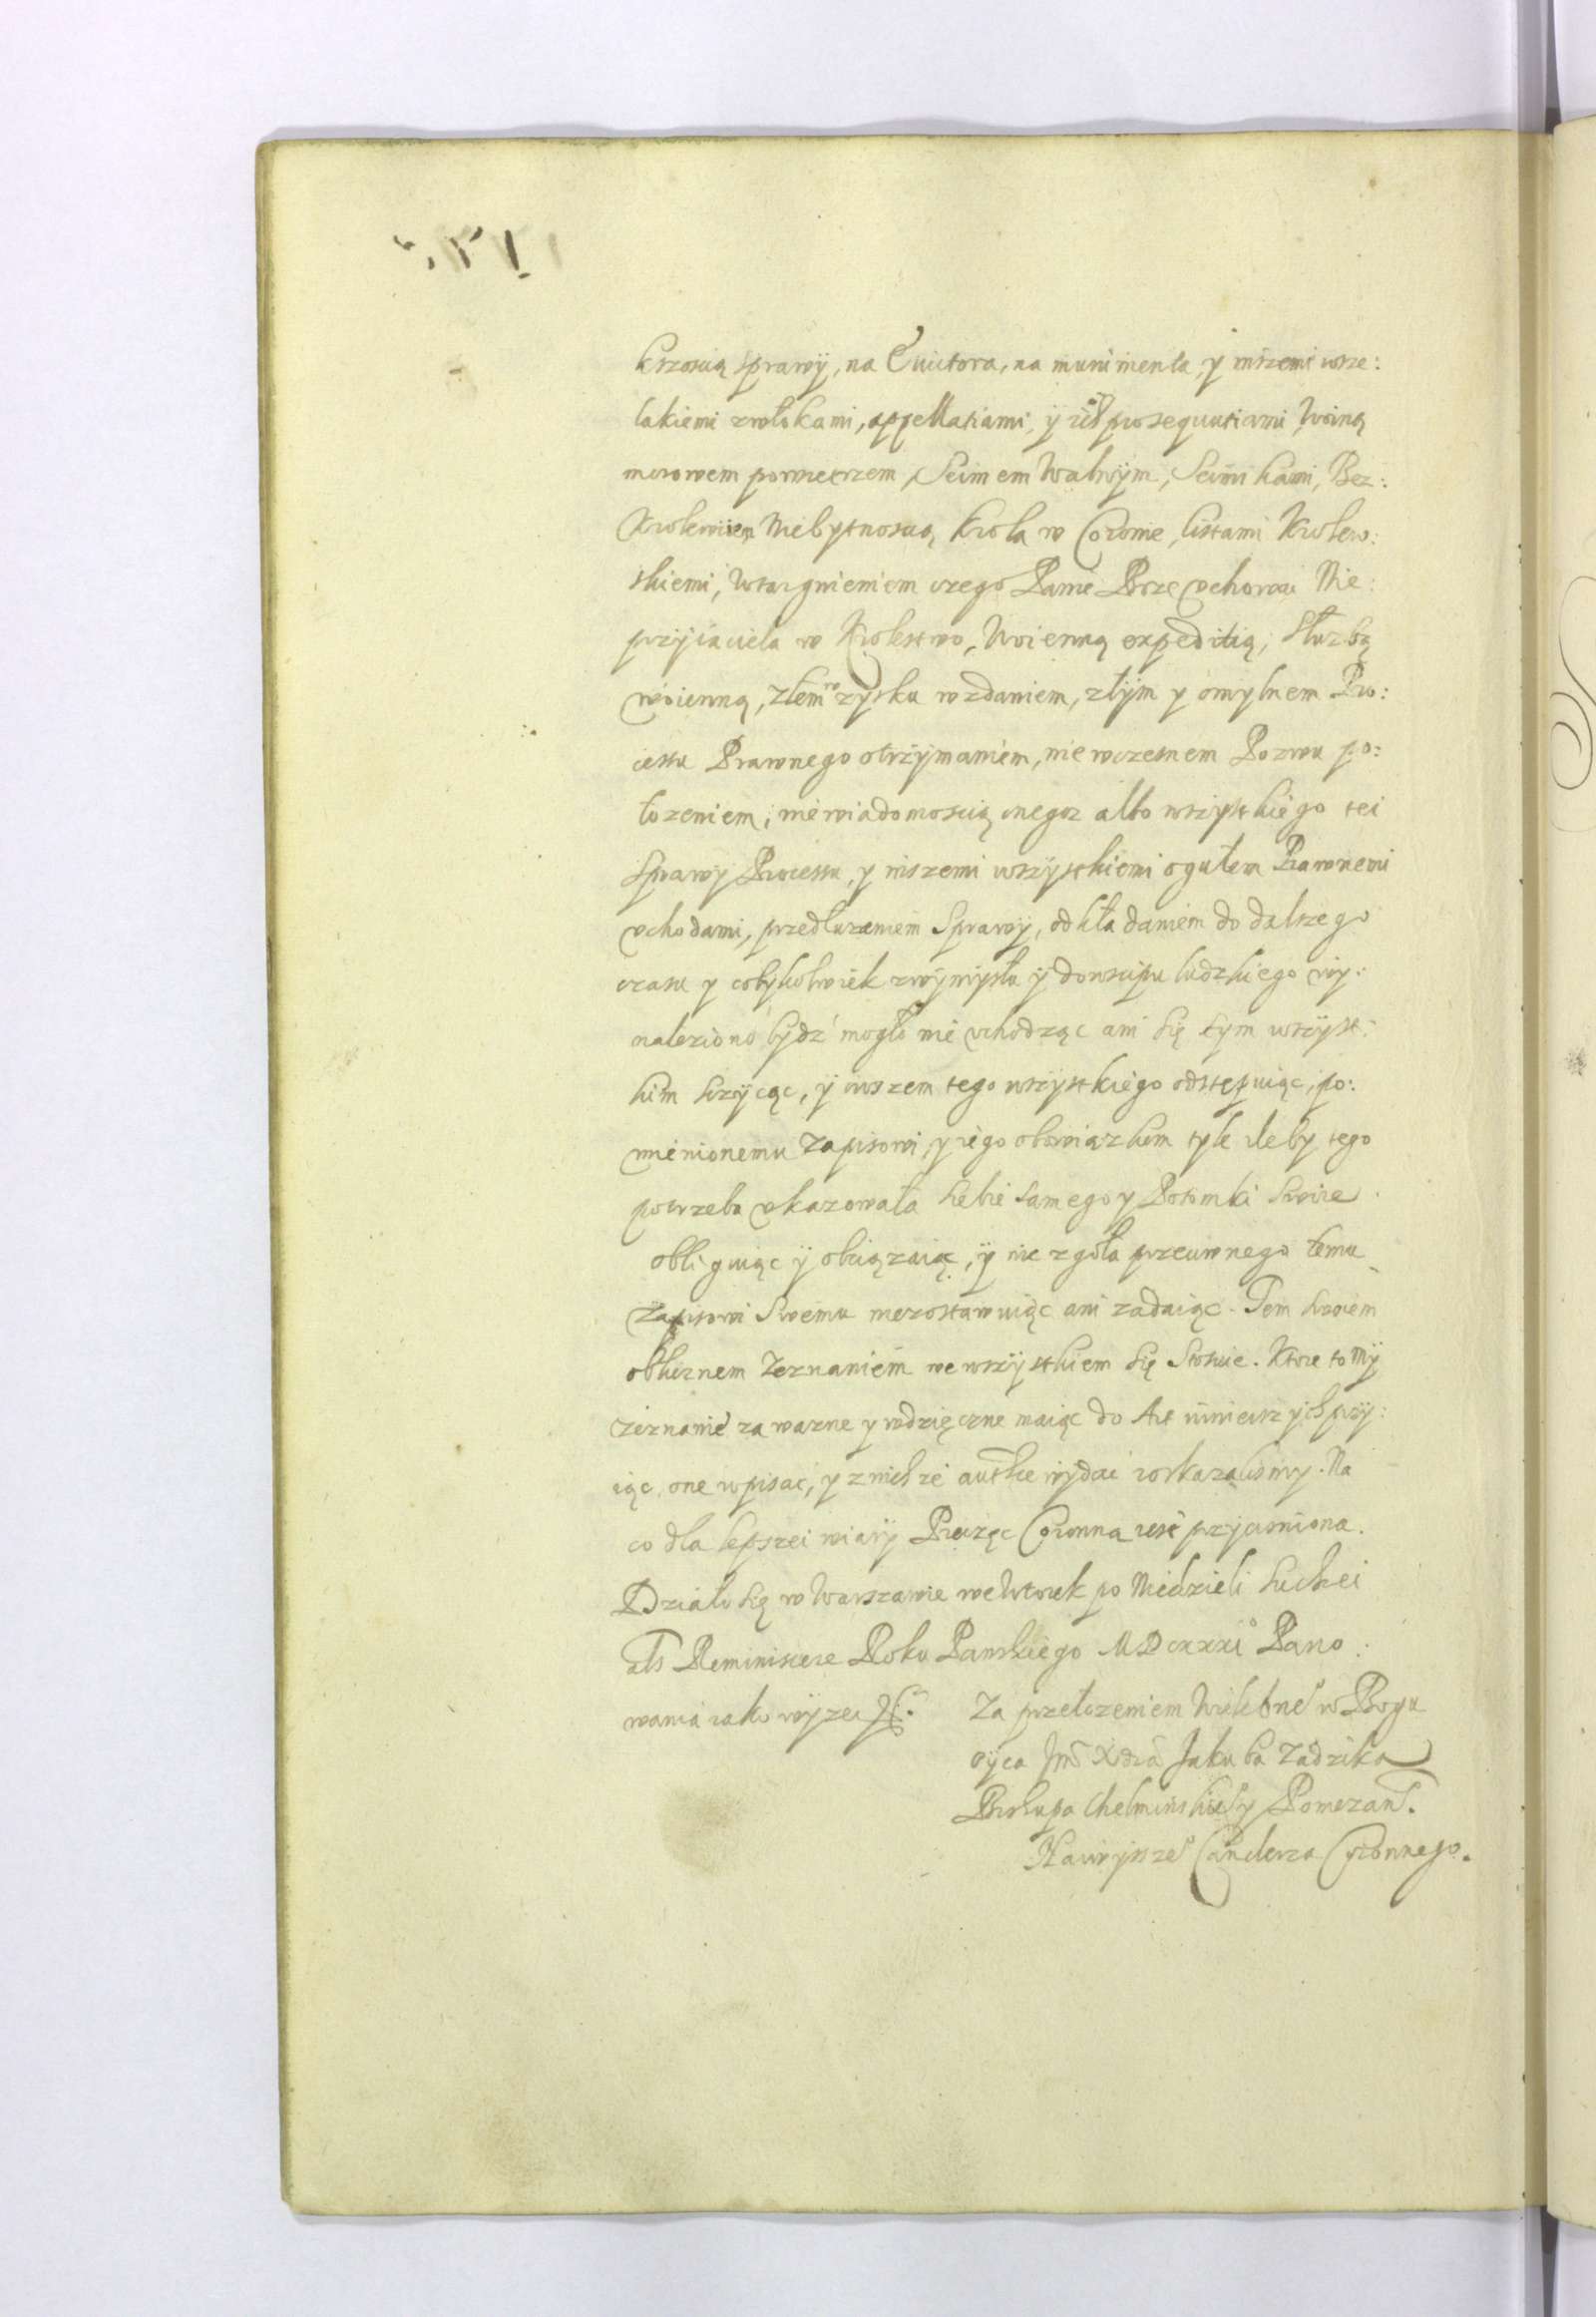 kszoscią sprawÿ, na Euictora, na munimenta, y inszemi wsze:
lakiemi zwlokami, appellatiami, ÿ ich prosequutiami woiną
morowem powietrzem, Seimem Walnÿm, Seimikami, Bez:
Krolewiem Niebytnoscią Krola w Coronie, listami Krolew:
skiemi, Wtargnieniem czego Panie Boze vchowai Nie:
przÿiaciela w Krolestwo, Woienną expeditią, Sluzbą
woienną, zlem w zysku wzdaniem, złÿm y omylnem Pro:
cessu Prawnego otrzÿmaniem, niewczesnem Pozwu po:
lozeniem, niewiadomoscią onegoz albo wszÿstkiego tei
Sprawy Processu, y inszemi wszÿstkiemi ogułem Prawnemi
vchodami, przedluzeniem Sprawÿ, odkładaniem do dalszego
czasu y cobykolwiek z wÿmÿsłu ÿ dowscipu ludzkiego wy:
naleziono bÿdź mogło nie vchodząc ani się tym wszÿst:
kim szczÿcąc, ÿ owszem tego wszÿstkiego odstępuiąc, po:
mienionemu Zapisowi, y iego obowiązkom tyle ileby tego
potrzeba vkazowała siebie samego y Potomki swoie
obliguiąc ÿ obciązaiąc, ÿ nic zgoła przeciwnego temu
Zapisowi Swemu niezostawuiąc ani zadaiąc. Tem swoiem
oblicznem Zeznaniem we wszÿstkiem się Stosuie. Ktore to Mÿ
zeznanie za wazne y wdzięczne maiąc do Act ninieiszych przÿ:
iąc, one wpisac, y z nichze autthe wydac roskazalismy. Na
co dla lepszei wiarÿ Pieczęc Coronna iest przycisniona.
Działo się w Warszawie we Wtorek po Niedzieli Suchei
als Reminiscere Roku Panskiego MDCXXXI Pano:
wania iako wÿzei
Za przełozeniem Wielebne° w Bogu
oÿca Jm° Xdza Jakuba Zadzika
Biskupa Chelminskie° y Pomezans.
Nawÿzsze° Canclerza Coronnego.